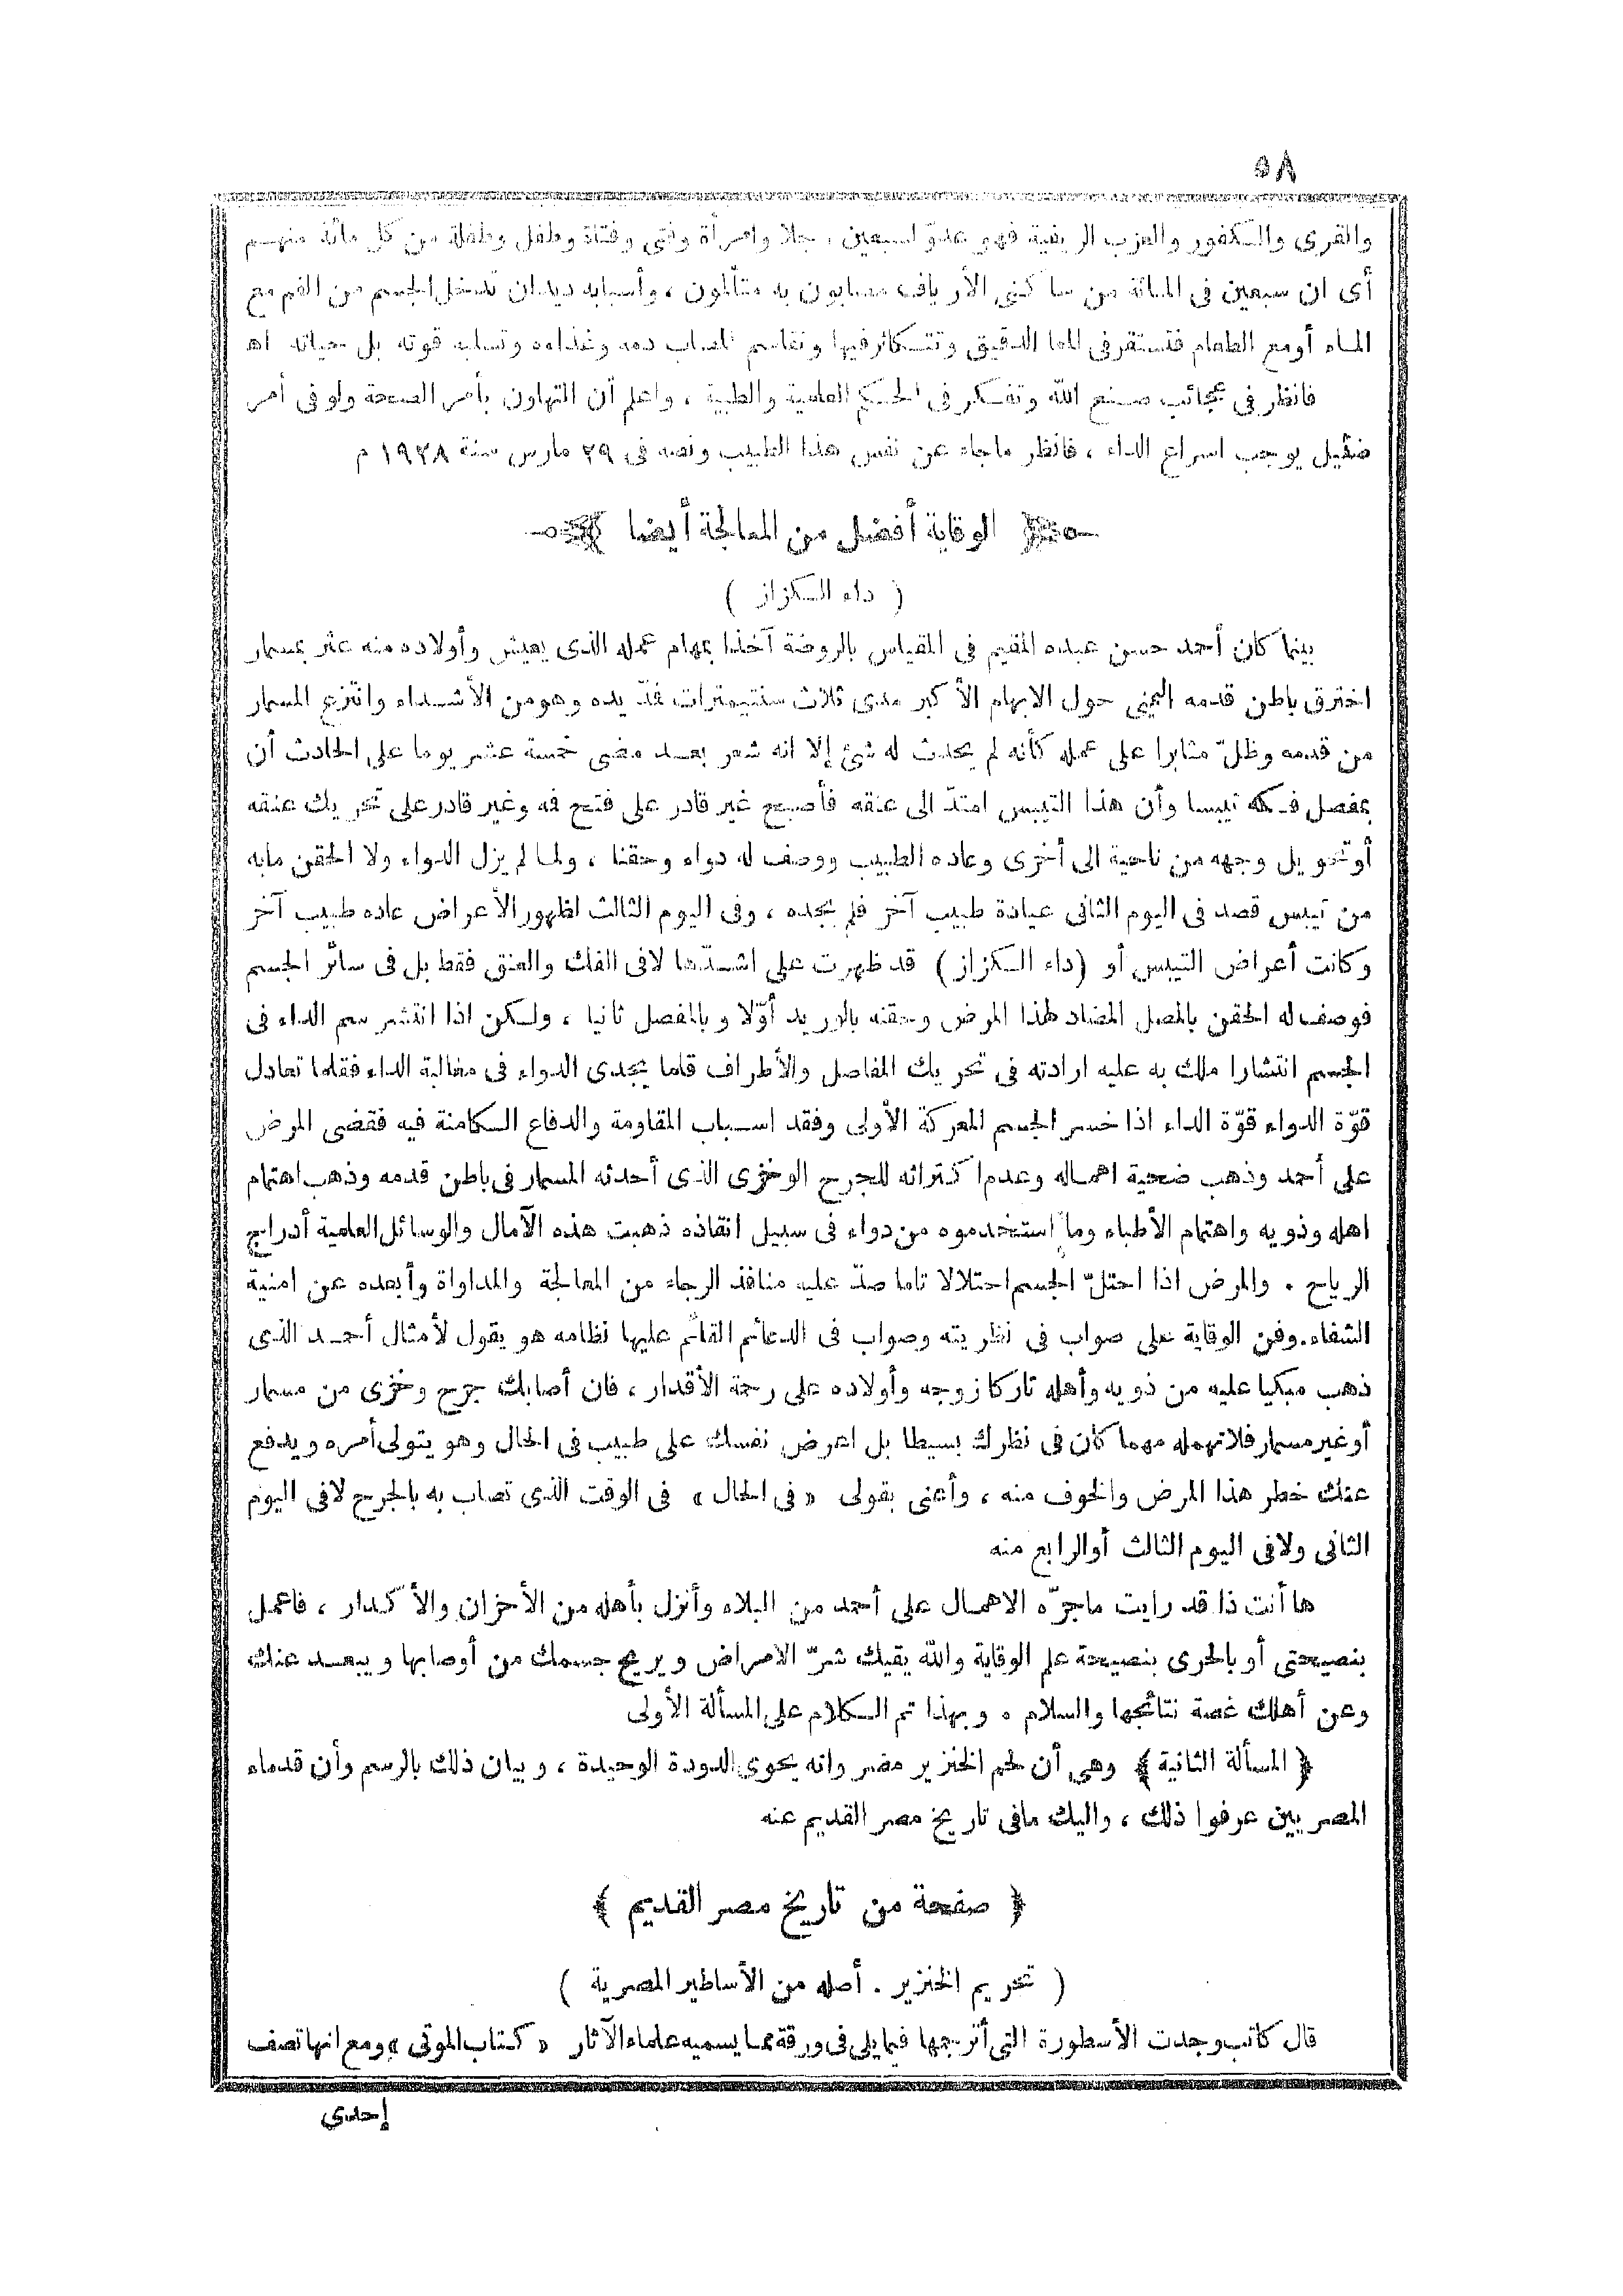 ٥٨
والقرى والكفور والعزب الريفية فهو عدوّ لسبعين رجلا وامرأة وفتى وفتاة وطفل وطفلة من كل مائة منهم
أى ان سبعين فى المائة من ساكنى الأرياف مصابون به متألمون ، وأسبابه ديدان تدخل الجسم من الفم مع
الماء أومع الطعام فتستقر فى المعا الدقيق وتتكاثر فيها وتقاسم المصاب دمه وغذاءه وتسلبه قوته بل حياته اهـ
فانظر فى عجائب صنع الله وتفكر فى الحكم العلمية والطبية ، واعلم أن التهاون بأمر الصحة ولو فى أمر
ضئيل يوجب اسراع الداء ، فانظر ماجاء عن نفس هذا الطبيب ونصه فى ٢٩ مارس سنة ١٩٢٨ م
الوقاية أفضل من المعالجة أيضا
( داء الكزاز )
بينما كان أحمد حسن عبده المقيم فى المقياس بالروضة آخذا بمهام عمله الذى يعيش وأولاده منه عثر بمسمار
اخترق باطن قدمه اليمنى حول الابهام الأكبر مدى ثلاث سنتيمترات فمدّ يده وهومن الأشداء وانتزع المسمار
من قدمه وظلّ مثابرا على عمله كأنه لم يحدث له شئ إلا انه شعر بعد مضى خمسة عشر يوما على الحادث أن
بمفصل فكه تيبسا وأن هذا التيبس امتدّ الى عنقه فأصبح غير قادر على فتح فه وغير قادر على تحريك عنقه
أوتحويل وجهه من ناحية الى أخرى وعاده الطبيب ووصف له دواء وحقنا ، ولما لم يزل الدواء ولا الحقن مابه
من تيبس قصد فى اليوم الثانى عيادة طبيب آخر فلم يجده ، وفى اليوم الثالث لظهور الأعراض عاده طبيب آخر
وكانت أعراض التيبس أو (داء الكزاز) قد ظهرت على اشدّها لافى الفك والعنق فقط بل فى سائر الجسم
فوصف له الحقن بالمصل المضاد لهذا المرض وحقنه بالوريد أوّلا وبالمفصل ثانيا ، ولكن اذا انتشر سم الداء فى
الجسم انتشارا ملك به عليه ارادته فى تحريك المفاصل والأطراف قلما يجدى الدواء فى مغالبة الداء فقلما تعادل
قوّة الدواء قوّة الداء اذا خسر الجسم المعركة الأولى وفقد اسباب المقاومة والدفاع الكامنة فيه فقضى المرض
على أحمد وذهب ضحية اهماله وعدم اكتراثه للجرح الوخزى الذى أحدثه المسمار فى باطن قدمه وذهب اهتمام
اهله وذويه واهتمام الأطباء وما استخدموه من دواء فى سبيل انقاذه ذهبت هذه الآمال والوسائل العلمية أدراج
الرياح . والمرض اذا احتلّ الجسم احتلالا تاما صدّ عليه منافذ الرجاء من المعالجة والمداواة وأبعده عن امنية
الشفاء . وفن الوقاية على صواب فى نظريته وصواب فى الدعائم القائم عليها نظامه هو يقول لأمثال أحمد الذى
ذهب مبكيا عليه من ذويه وأهله تاركا زوجه وأولاده على رحمة الأقدار ، فان أصابك جرح وخزى من مسمار
أوغير مسمار فلاتهمله مهما كان فى نظرك بسيطا بل اعرض نفسك على طبيب فى الحال وهو يتولى أمره ويدفع
عنك خطر هذا المرض والخوف منه ، وأعنى بقولى « فى الحال » فى الوقت الذى تصاب به بالجرح لافى اليوم
الثانى ولافى اليوم الثالث أوالرابع منه
ها أنت ذا قد رايت ماجرّه الاهمال على أحمد من البلاء وأنزل بأهله من الأحزان والأكدار ، فاعمل
بنصيحتى أو بالحرى بنصيحة علم الوقاية والله يقيك شرّ الامراض ويريح جسمك من أوصابها ويبعد عنك
وعن أهلك غصة نتائجها والسلام . وبهذا تم الكلام على المسألة الأولى
﴿ المسألة الثانية ﴾ وهى أن لحم الخنزير مضر وانه يحوى الدودة الوحيدة ، وبيان ذلك بالرسم وأن قدماء
المصريين عرفوا ذلك ، واليك مافى تاريخ مصر القديم عنه
﴿ صفحة من تاريخ مصر القديم ﴾
( تحريم الخنزير . أصله من الأساطير المصرية )
قال كاتب وجدت الأسطورة التى أترجمها فيمايلى فى ورقة مما يسميه علماء الآثار « كتاب الموتى » ومع انها تصف
إحدى